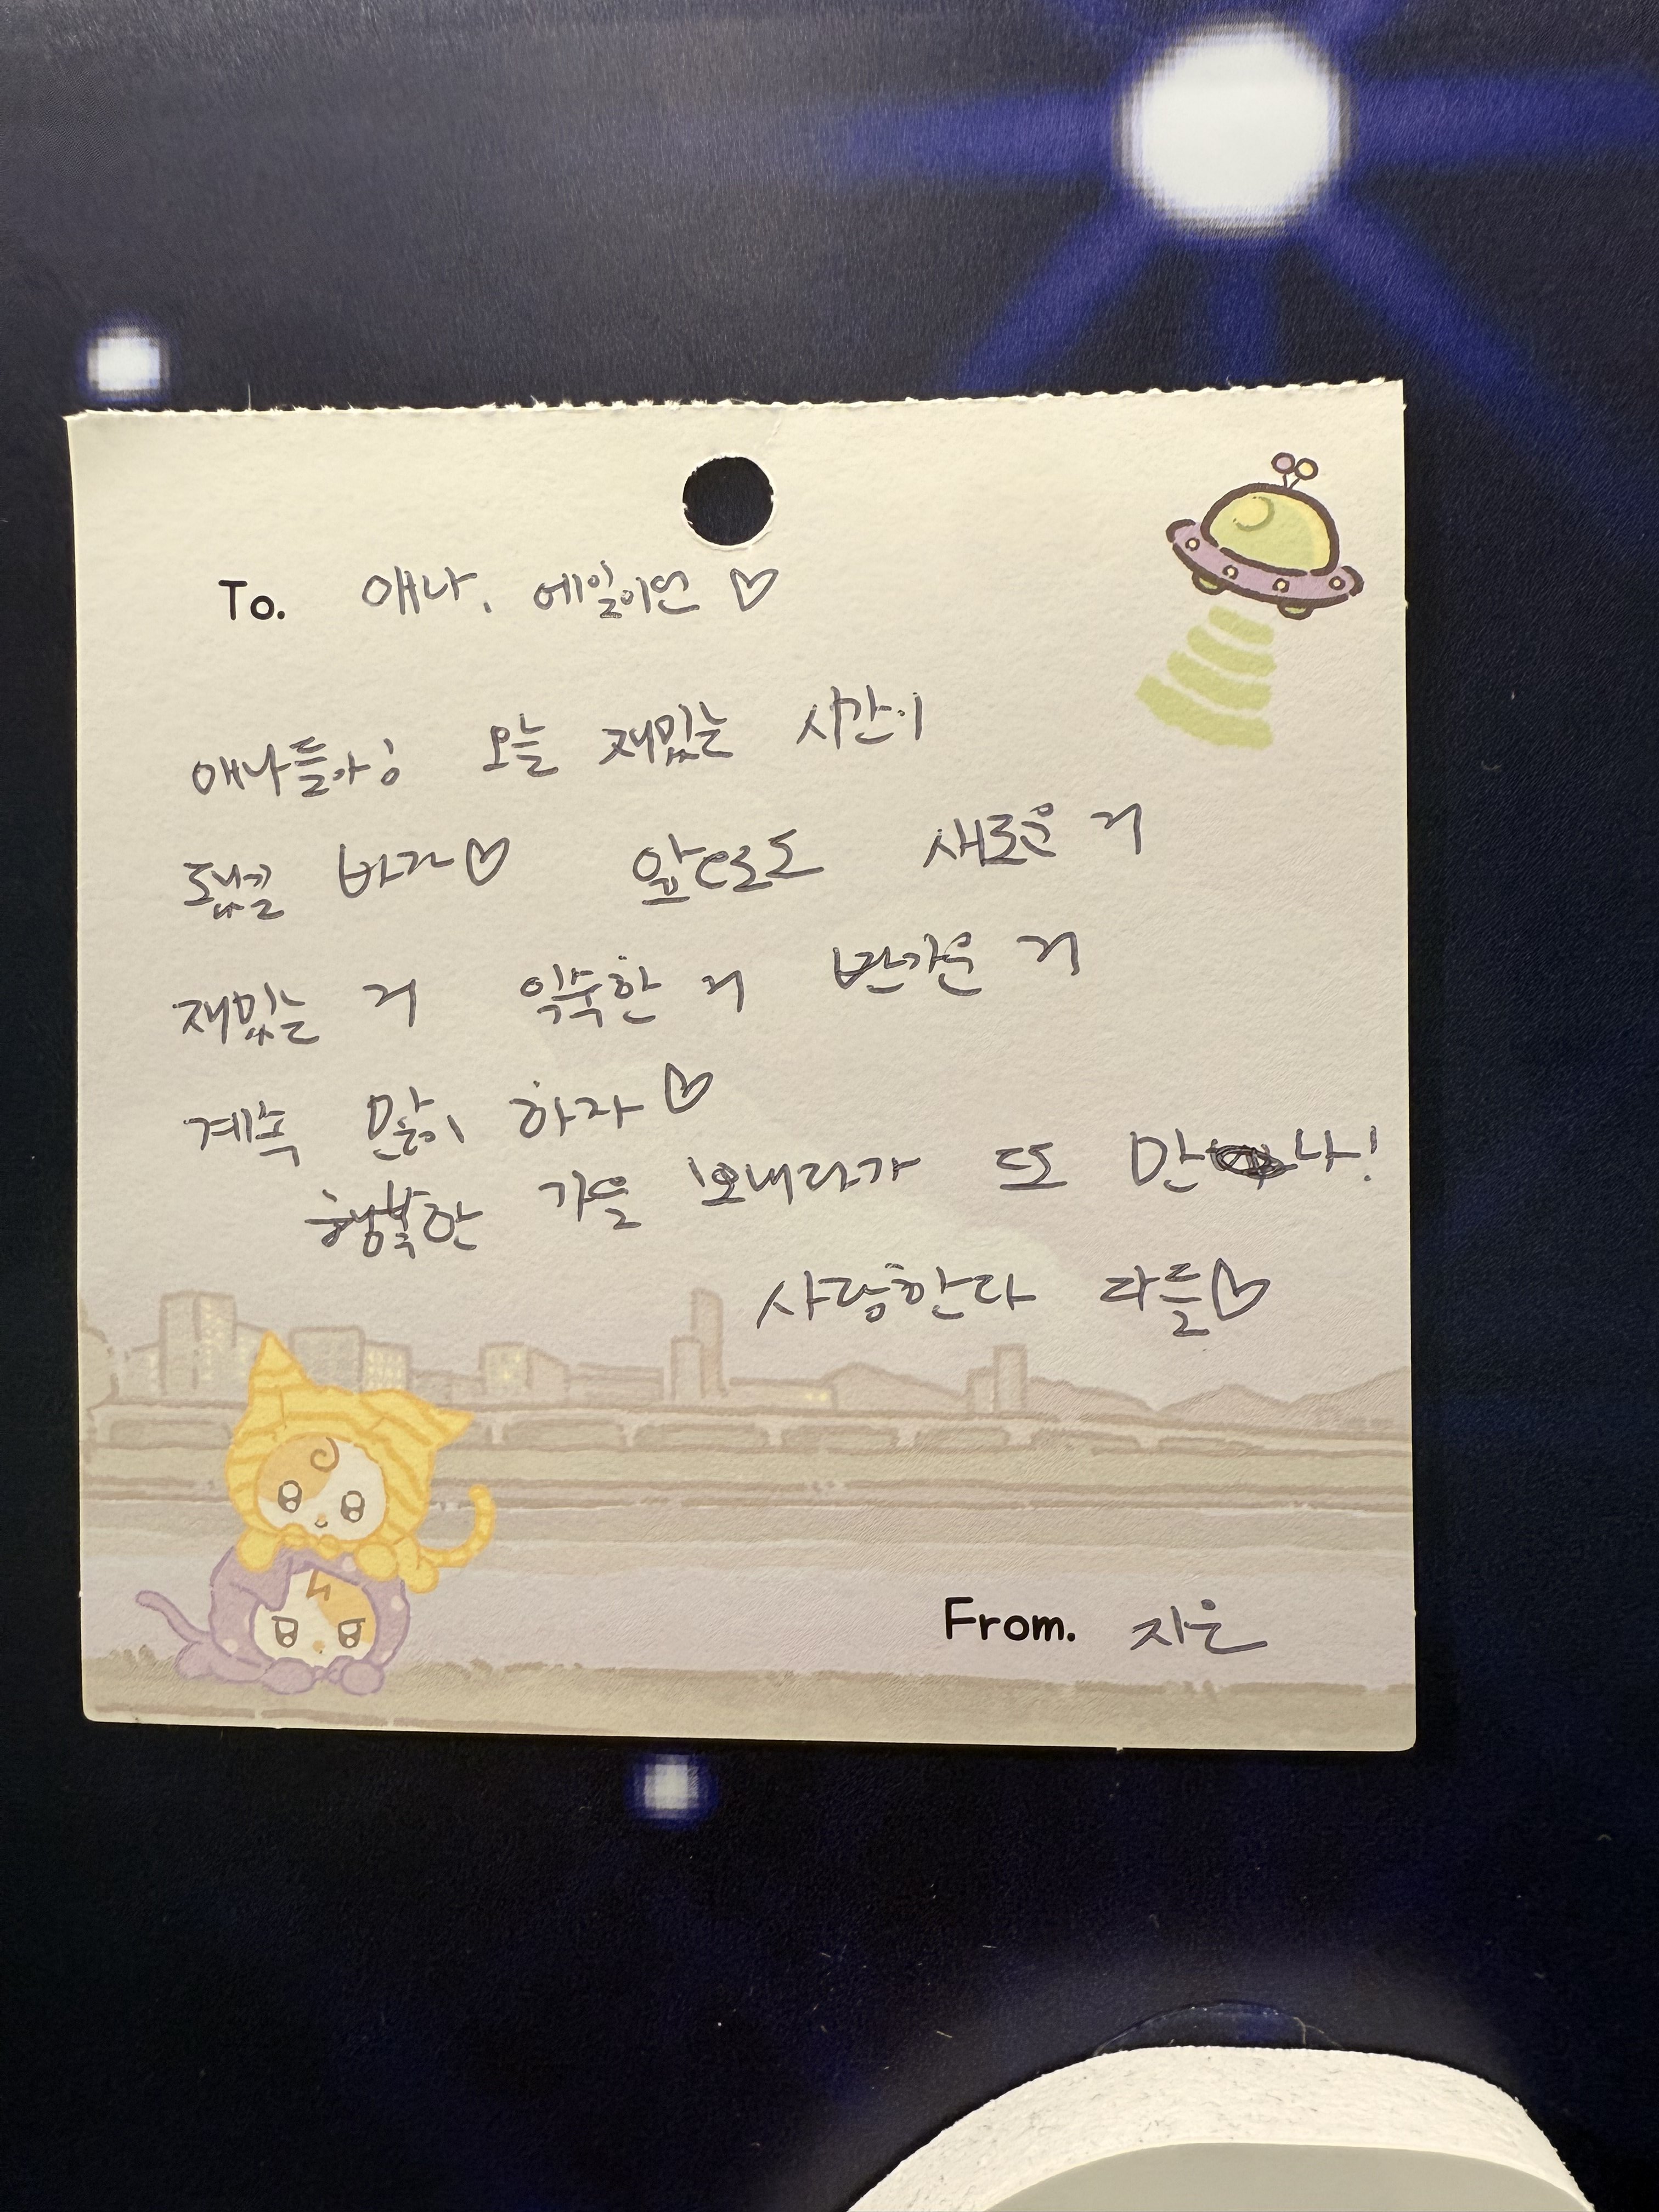 To. 애나, 에일이언 ♡
애나들아! 오늘 재밌는 시간이
됐길 바라♡ 앞으로도 새로운 거
재밌는 거 익숙한 거 반가운 거
계속 많이 하자♡
행복한 가을 보내라가 또 만나!
사랑한다 다들♡
From. 지은